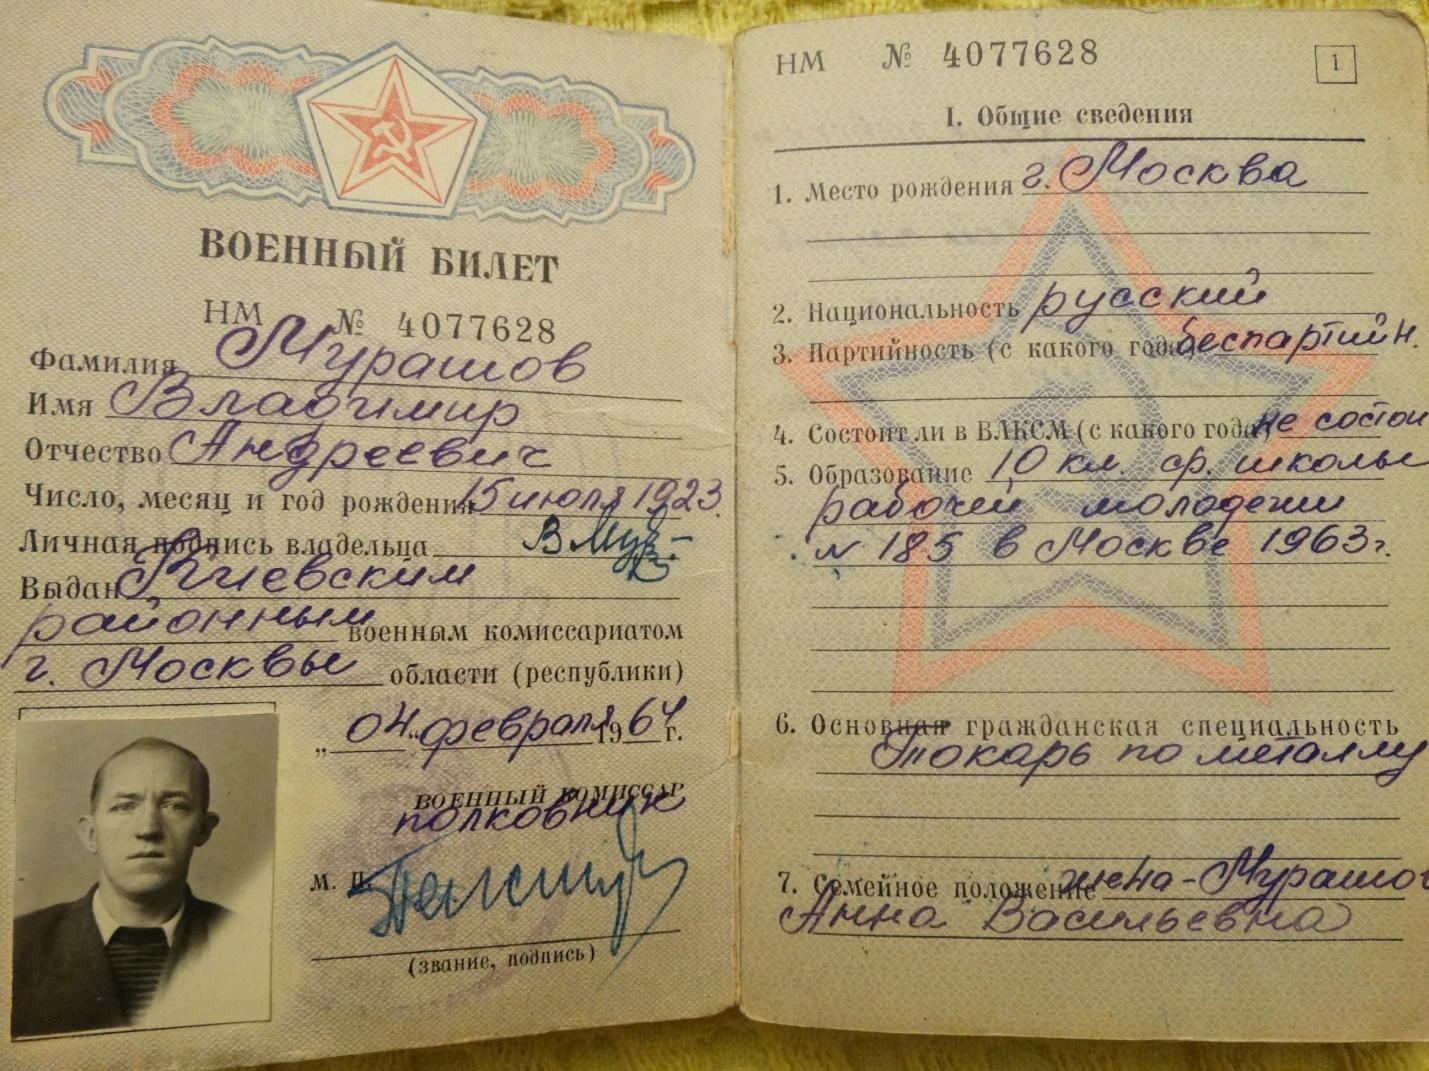 ВОЕННЫЙ БИЛЕТ
НМ № 4077628
Фамилия Мурашов
Имя Владимир
Отчество Андреевич
Число, месяц и год рождения 15 июля 1923.
Личная подпись владельца В Мур
Выдан Киевским
районным военным комиссариатом
г. Москвы области (республики)
„04“ февраля 1964 г.
ВОЕННЫЙ КОМИССАР
полковник
М. П.
(звание, подпись)
НМ № 4077628
1
I. Общие сведения
1. Место рождения г. Москва
2. Национальность русский
3. Партийность (с какого года) беспартийн.
4. Состоит ли в ВЛКСМ (с какого года) не состои
5. Образование 10 кл. ср. школы
рабочей молодежи
№ 185 в Москве 1963 г.
6. Основная гражданская специальность
Токарь по металлу
7. Семейное положение жена - Мурашов
Анна Васильевна